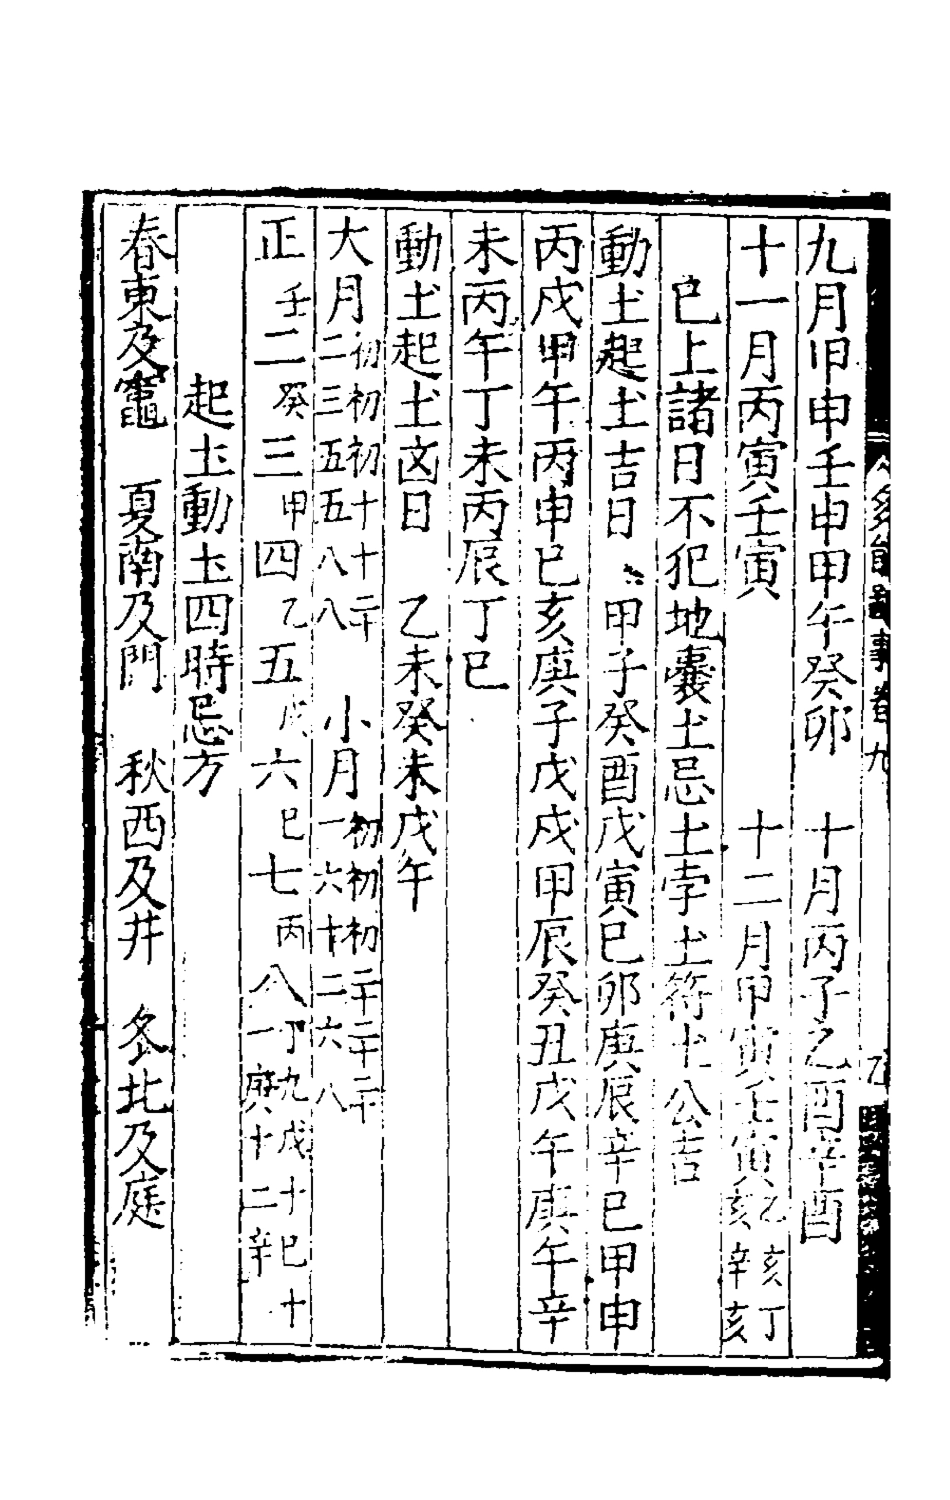 九月旧申壬申甲午癸卯　十月丙子乙酉辛酉
十一月丙寅壬寅　十二月甲寅壬寅乙亥丁亥辛亥
已上諸日不犯地囊土忌土孛土符土公吉
動土起土吉日　甲子癸酉戊寅巳卯庚辰辛巳甲申
丙戌甲午丙申巳亥庚子戊戌甲辰癸丑戊午庚午辛
未丙午丁未丙辰丁巳
動土起土凶日　乙未癸未戊午
大月初二初三初五十五十八二十八　小月初一初六初十二十二二十六二十八
正壬二癸三甲四乙五戊六巳七丙八丁九戊十巳十一庚十二辛
起土動土四時忌方
春東及竈　夏南及門　秋西及井　冬北及庭
多能鄙事卷九